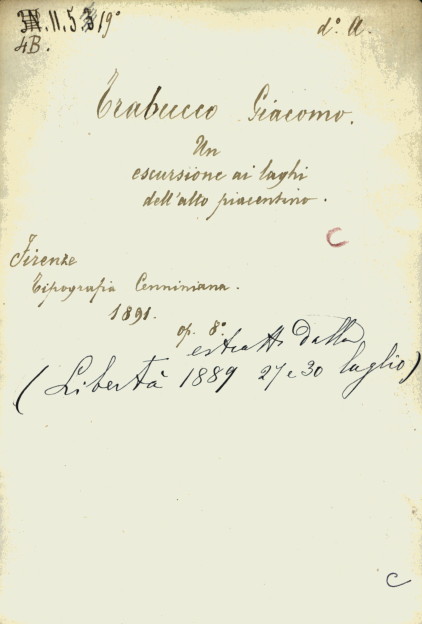 II.5 19°
d° A.
4B.
Trabucco Giacomo.
Un
escursione ai laghi
dell'alto piacentino.
C
Firenze
Tipografia Cenniniana.
1891.
op. 8°
estratto dalla
(Libertà 1889 27 e 30 luglio)
C